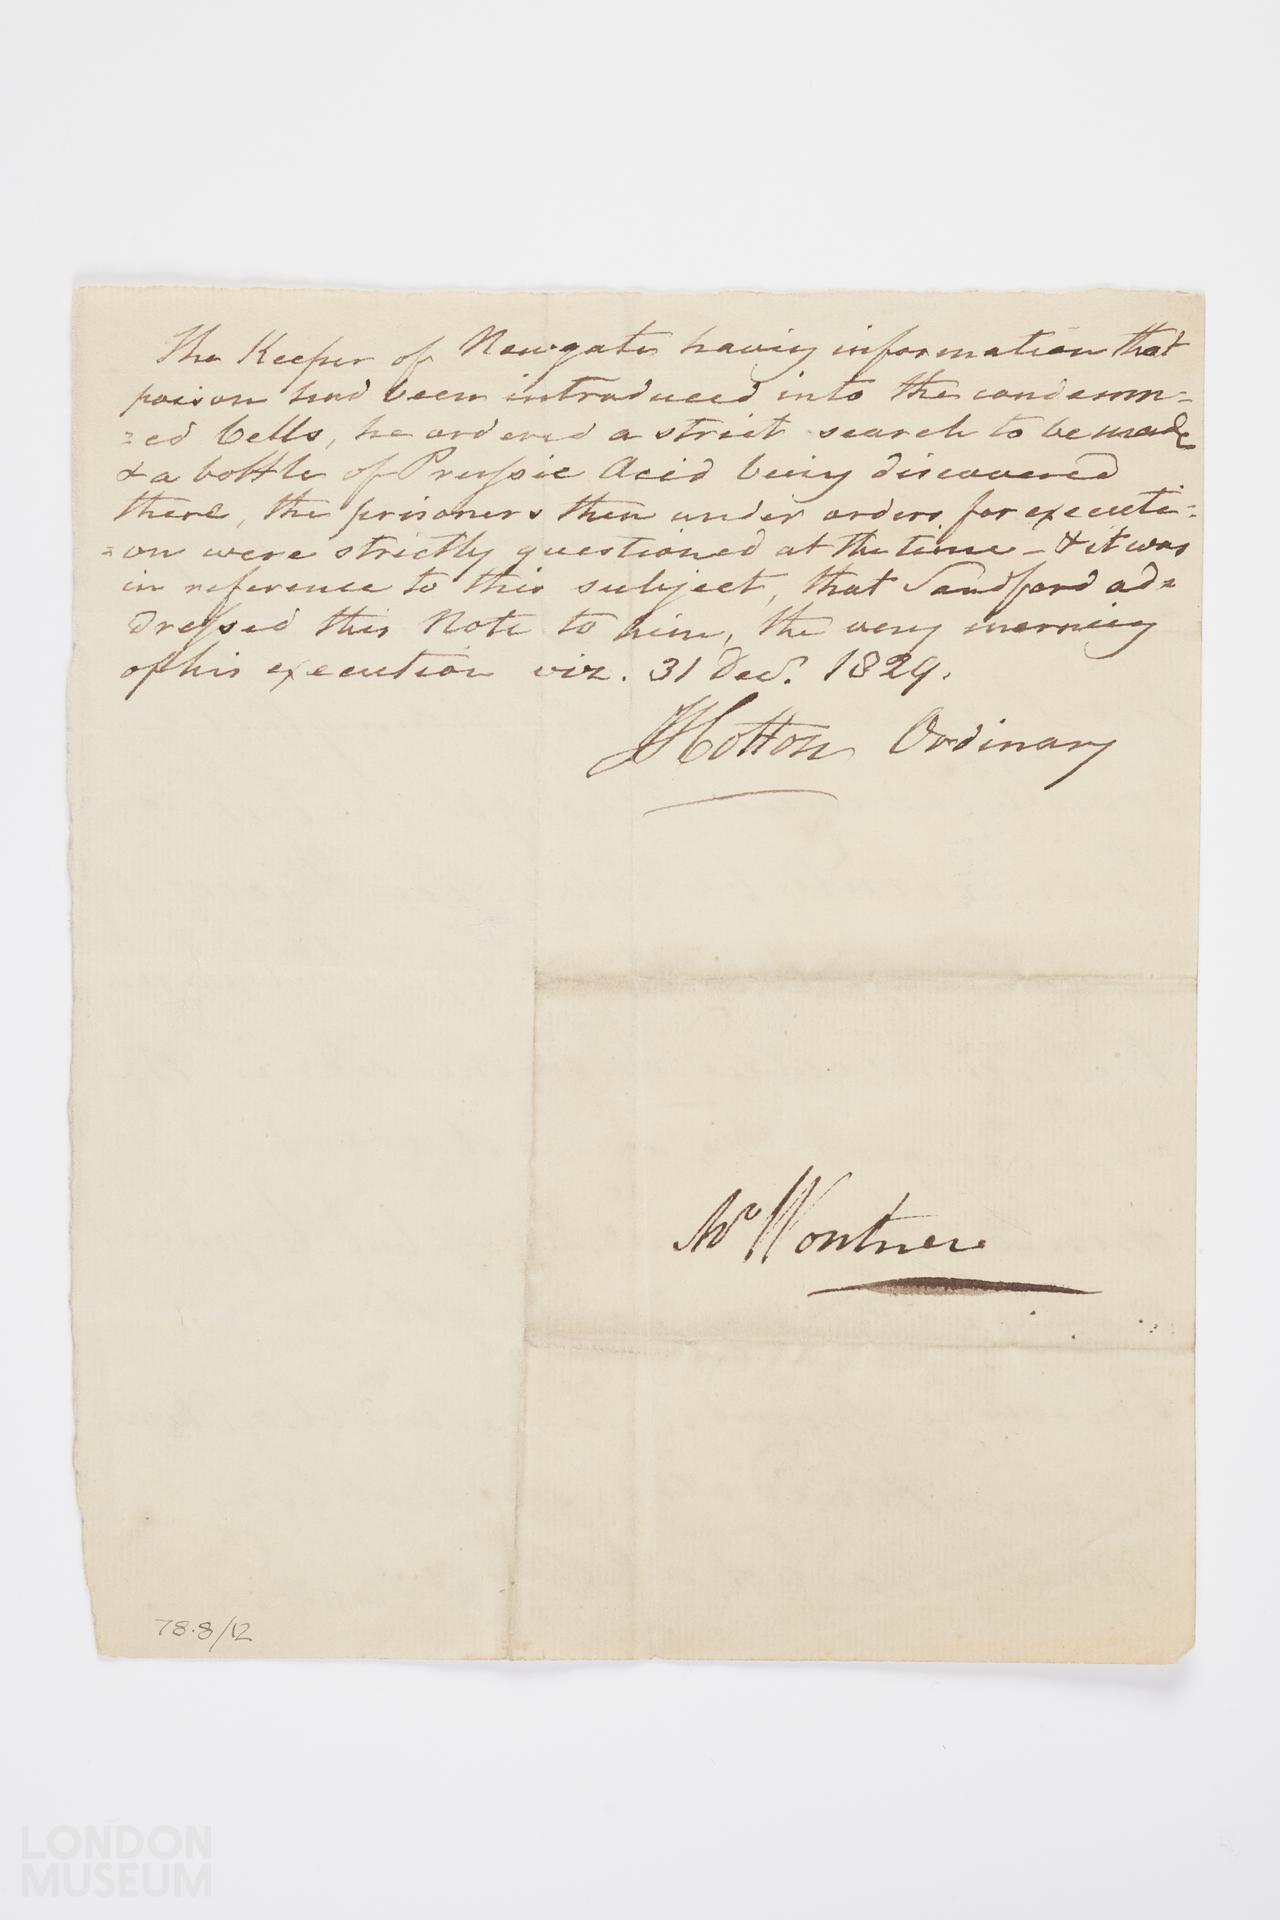 The Keeper of Newgate having information that
poison had been introduced into the condemn=
=ed Cells, he ordered a strict search to be made
& a bottle of Prussic Acid being discovered
there, the prisoners then under orders for executi=
=on were strictly questioned at the time - & it was
in reference to this subject, that Sandford ad=
dressed this Note to him, the very morning
of his execution viz. 31 Decr. 1829.
HCotton Ordinary
Mr Wontner
78.8/12
LONDON
MUSEUM